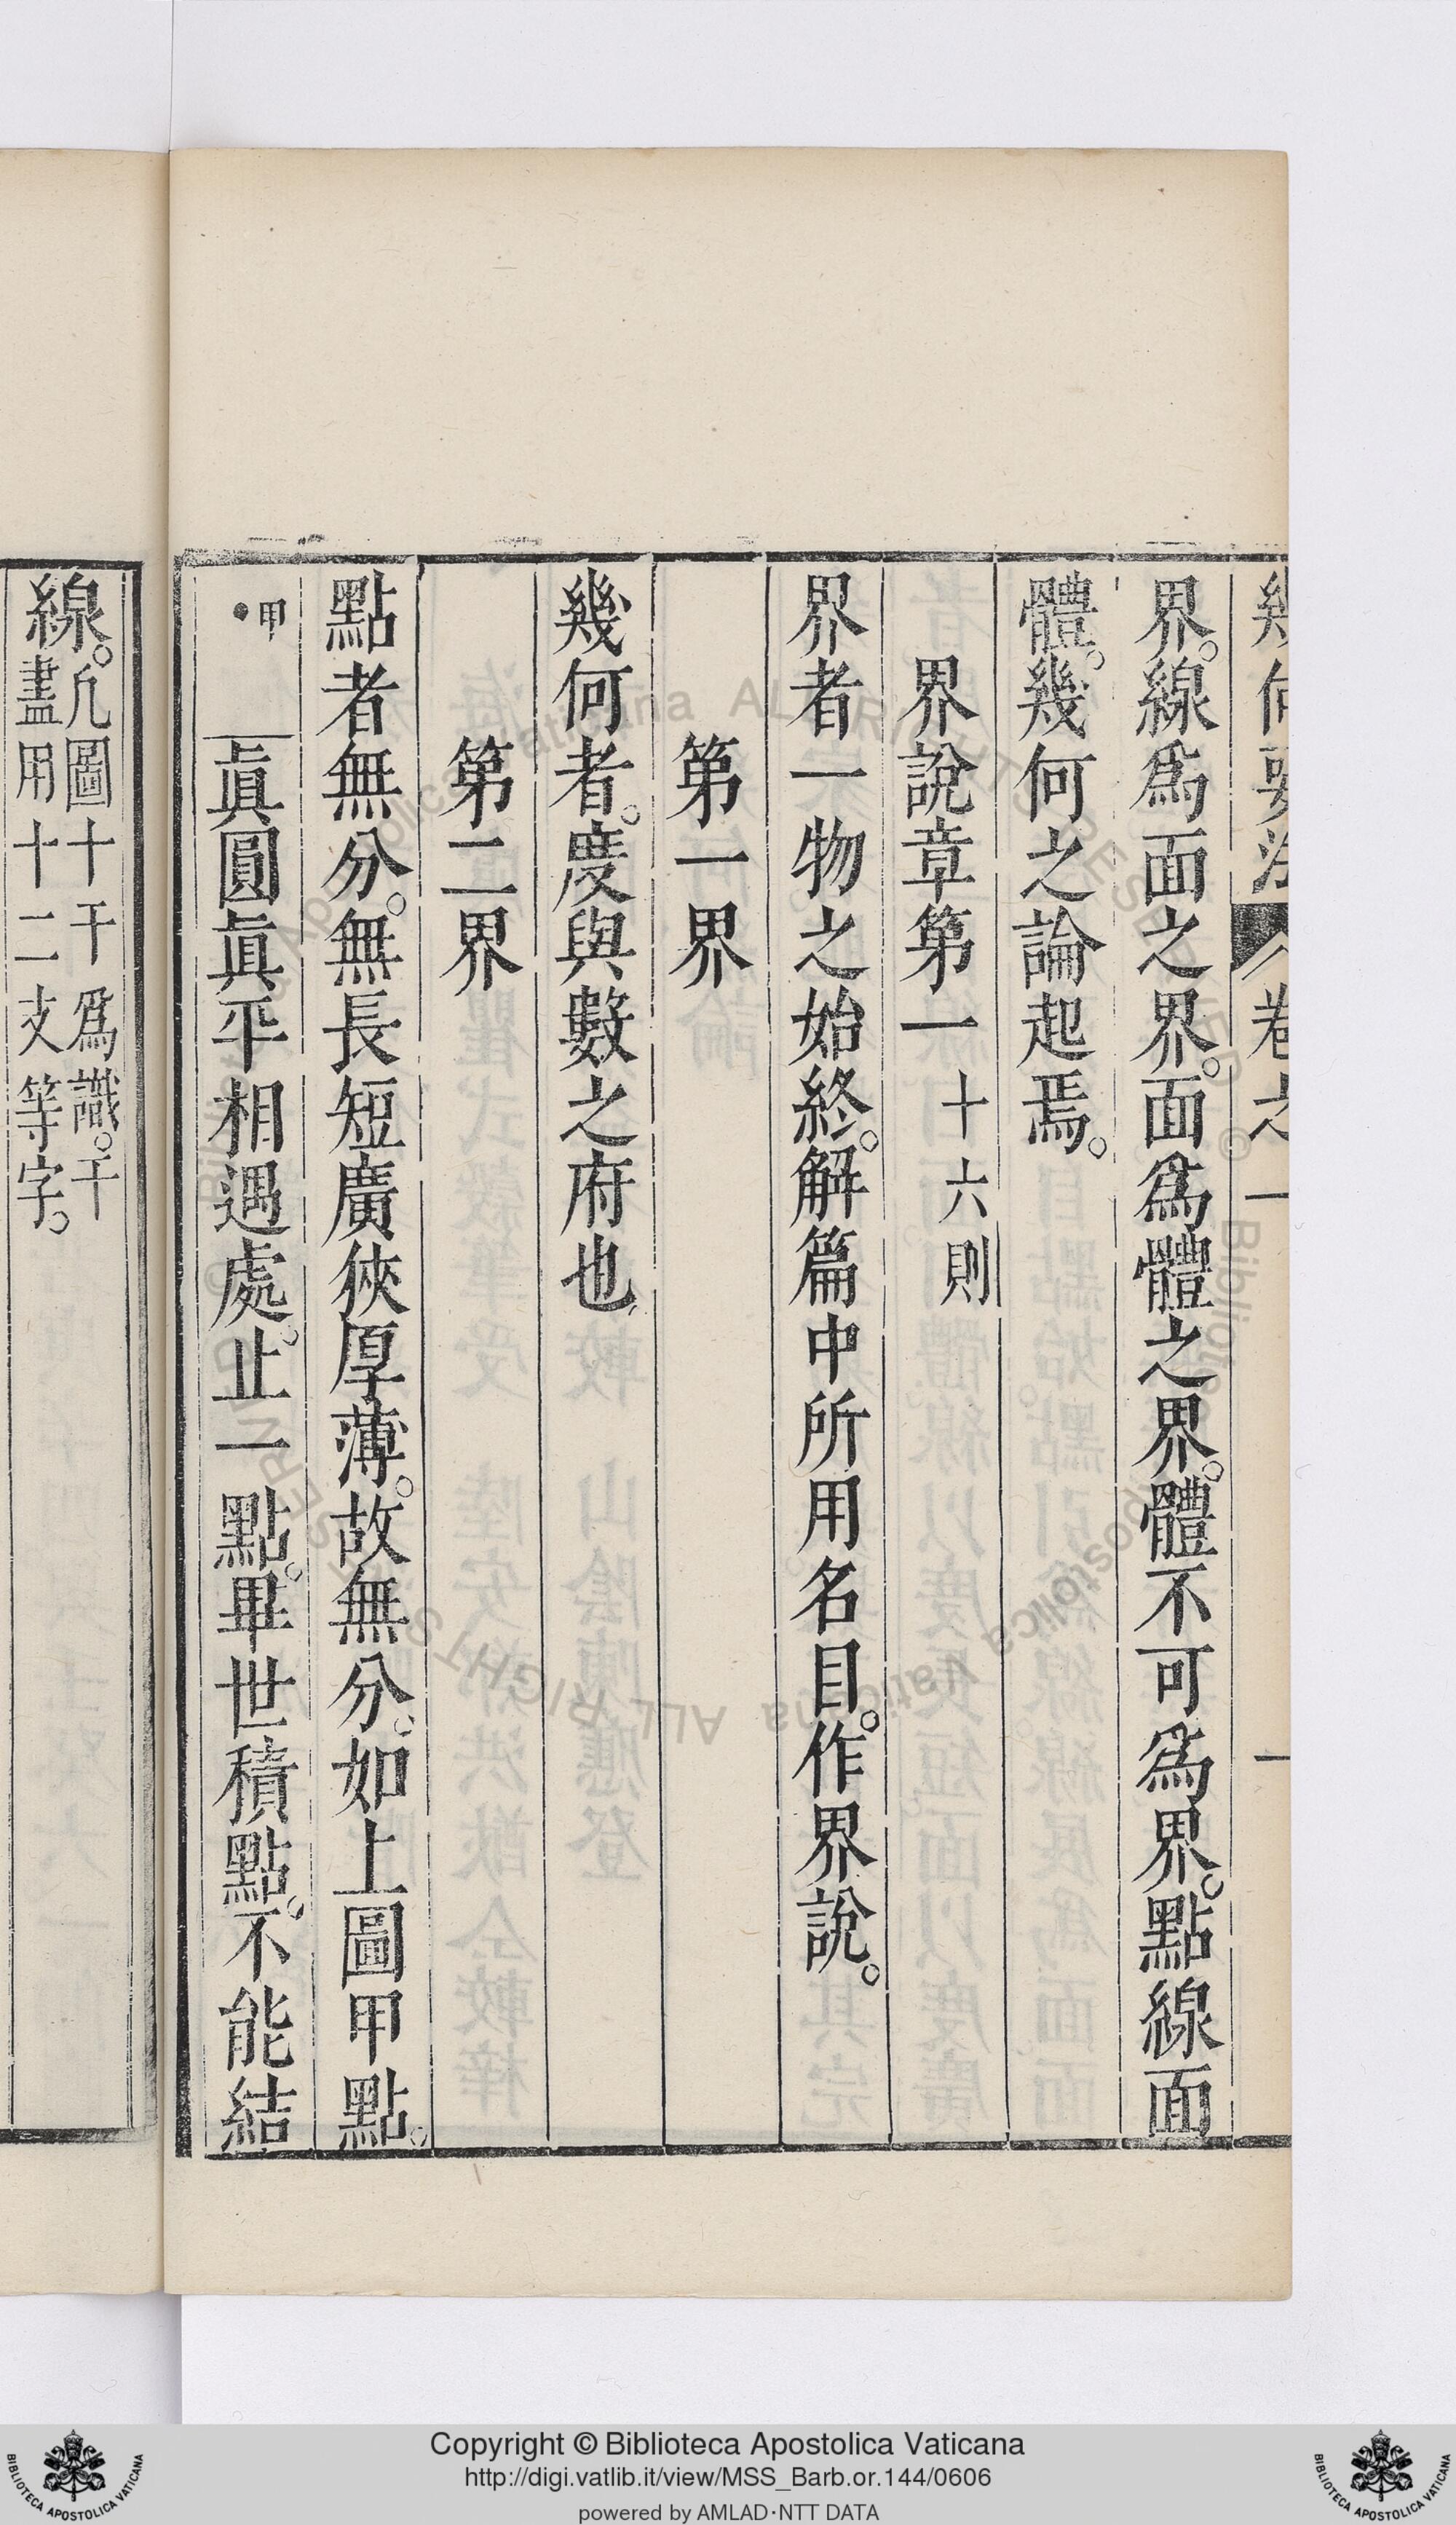 幾何要法 卷之一 一
界。線爲面之界。面爲體之界。體不可爲界。點線面
體。幾何之論起焉。
界說章第一 十六則
界者一物之始終。解篇中所用名目。作界說。
第一界
幾何者。度與數之府也
第二界
點者無分。無長短廣狹厚薄。故無分。如上圖甲點。
甲
眞圓眞平相遇處。止一點。畢世積點。不能結
線。凡圖十干爲識。干
盡用十二支等字。
Copyright © Biblioteca Apostolica Vaticana
http://digi.vatlib.it/view/MSS_Barb.or.144/0606
powered by AMLAD·NTT DATA
BIBLIOTECA APOSTOLICA VATICANA
BIBLIOTECA APOSTOLICA VATICANA